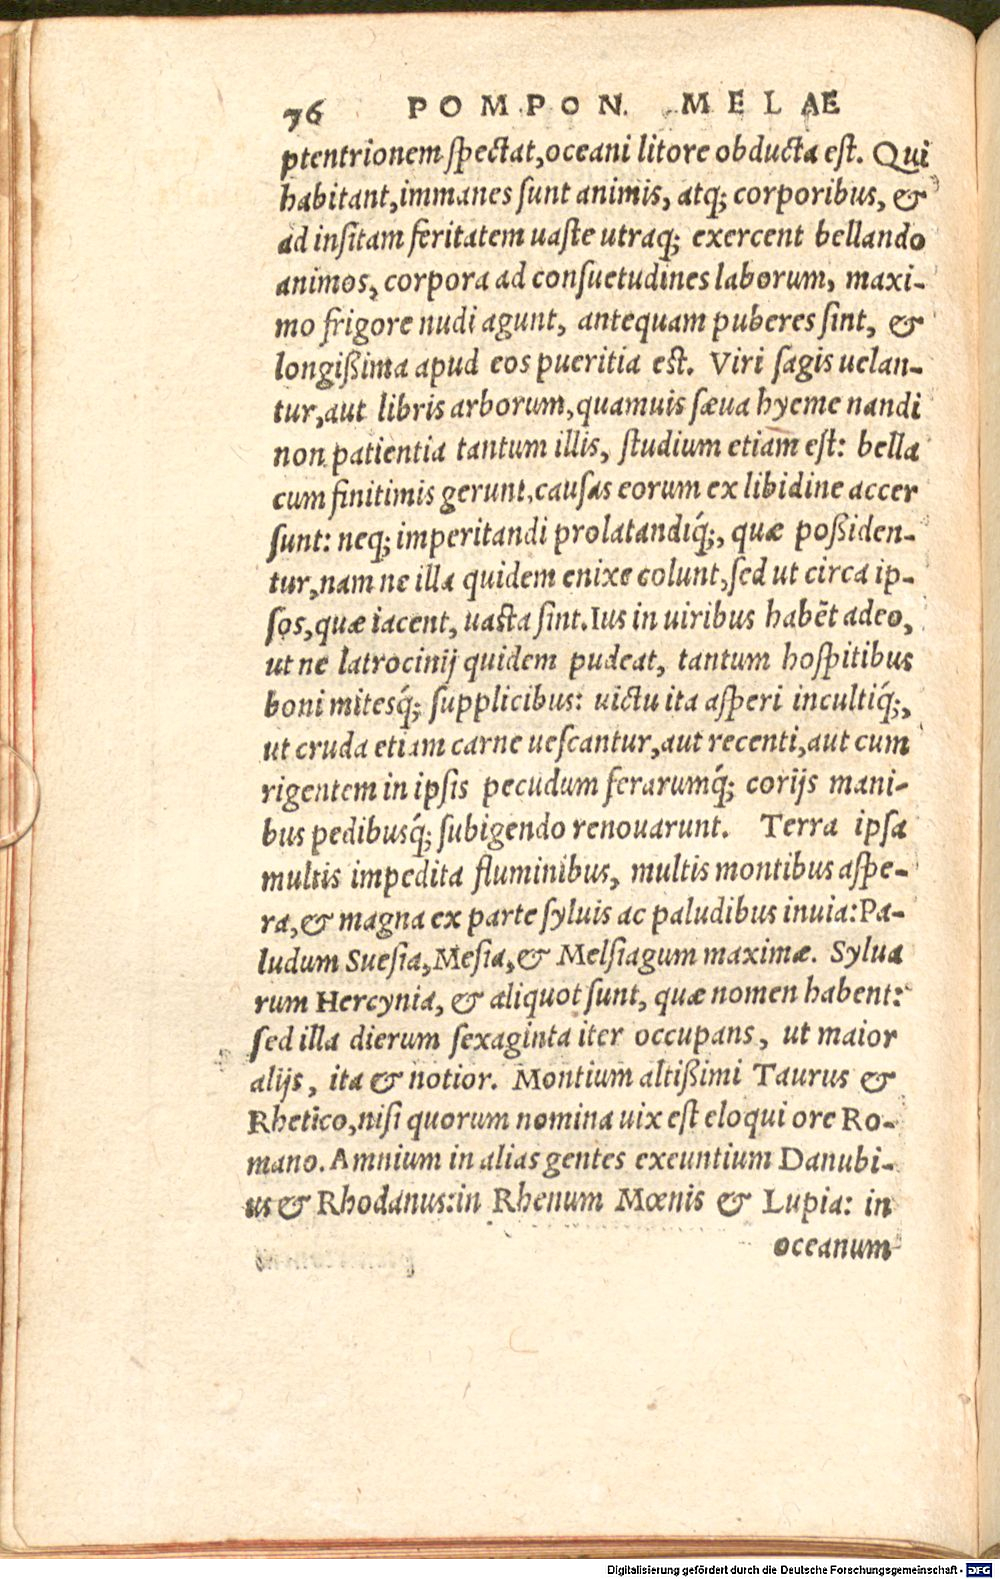 76 POMPON. MELAE
ptentrionem spectat, oceani litore obducta est. Qui
habitant, immanes sunt animis, atq; corporibus, &
ad insitam feritatem uaste utraq; exercent bellando
animos, corpora ad consuetudines laborum, maxi-
mo frigore nudi agunt, antequam puberes sint, &
longißima apud eos pueritia est. Viri sagis uelan-
tur, aut libris arborum, quamuis sæua hyeme nandi
non patientia tantum illis, studium etiam est: bella
cum finitimis gerunt, causas eorum ex libidine accer
sunt: neq; imperitandi prolatandiq́;, quæ poßiden-
tur, nam ne illa quidem enixe colunt, sed ut circa ip-
sos, quæ iacent, uasta sint. Ius in uiribus habẽt adeo,
ut ne latrocinij quidem pudeat, tantum hospitibus
boni mitesq́; supplicibus: uictu ita asperi incultiq́;,
ut cruda etiam carne uescantur, aut recenti, aut cum
rigentem in ipsis pecudum ferarumq́; corijs mani-
bus pedibusq́; subigendo renouarunt. Terra ipsa
multis impedita fluminibus, multis montibus aspe-
ra, & magna ex parte syluis ac paludibus inuia: Pa-
ludum Suesia, Mesia, & Melsiagum maximæ. Sylua
rum Hercynia, & aliquot sunt, quæ nomen habent:
sed illa dierum sexaginta iter occupans, ut maior
alijs, ita & notior. Montium altißimi Taurus &
Rhetico, nisi quorum nomina uix est eloqui ore Ro-
mano. Amnium in alias gentes exeuntium Danubi-
us & Rhodanus: in Rhenum Mœnis & Lupia: in
oceanum
Digitalisierung gefördert durch die Deutsche Forschungsgemeinschaft - DFG